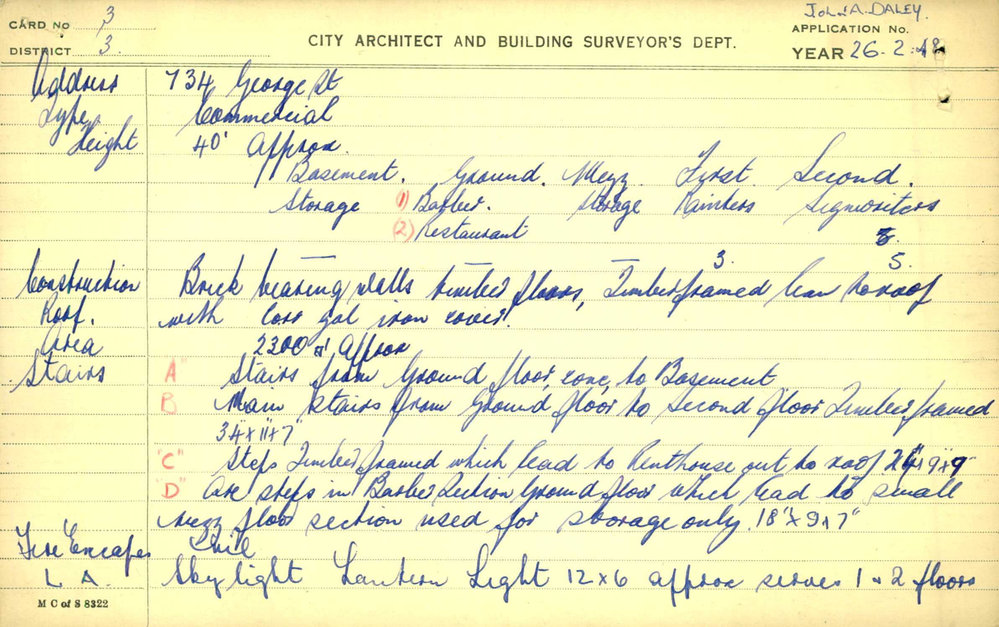 CARD No 3
DISTRICT 3.
CITY ARCHITECT AND BUILDING SURVEYOR'S DEPT.
JOHN A. DALEY.
APPLICATION No.
YEAR 26-2-48
Address 734 George St
Type Commercial
Height 40' Approx.
Basement. Ground. Mezz. First. Second.
Storage 1) Barber. Storage Painters Signwriters
(2) Restaurant
3. 5.
Construction Brick bearing walls timber floors, Timber framed lean to roof
Roof. with Corr gal iron cover.
Area 2300 □' Approx
Stairs "A" Stairs from Ground floor, to Basement
B Main Stairs from Ground floor to Second floor Timber framed
34" x 11" x 7"
"C" Steps Timber framed which lead to Penthouse out to roof 24" x 9" x 9"
"D" Are steps in Barber Section Ground floor which lead to small
mezz floor section used for storage only. 18" x 9 x 7"
Fire Escapes Nil
L. A. Sky light Lantern Light 12 x 6 approx serves 1 & 2 floors
M C of S 8322